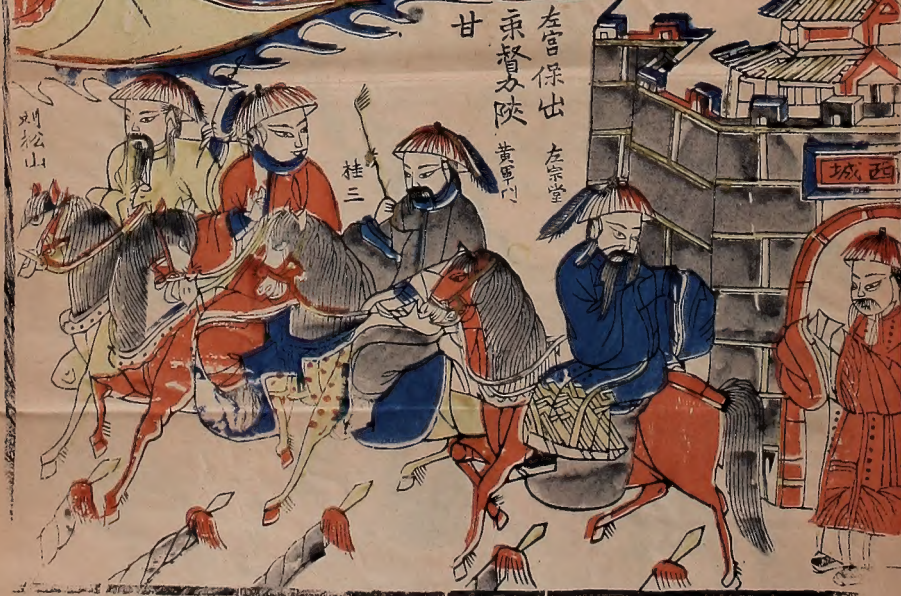 左宫保出
京督办陕
甘
左宗堂
黄軍门
桂二
刘松山
西城